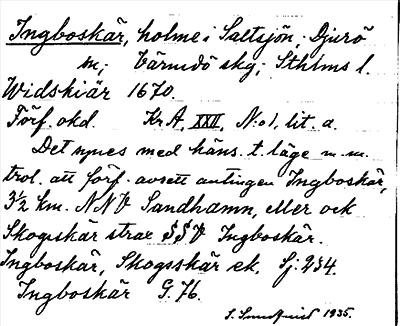 Ingboskär, holme i Saltsjön; Djurö
sn; Värmdö skg; Sthlms l.
Widskiär 1670.
Förf. okd. Kr. A, XXII, N:o 1, lit. a.
Det synes med häns. t. läge m. m.
trol. att förf. avsett antingen Ingboskär,
3½ km. NNV Sandhamn, eller ock
Skogsskär strax SSV Ingboskär.
Ingboskär, Skogsskär ek. Sj. 234.
Ingboskär G. 76.
S. Sundquist 1935.